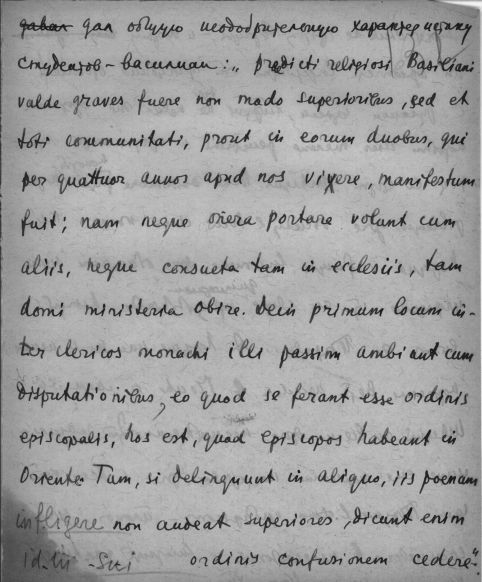 давал дал общую неодобрительную характеристику
студентов-василиан: „predicti religiosi Basiliani
valde graves fuere non modo superioribus, sed et
toti communitati, prout in eorum duobus, qui
per quattuor annos apud nos vixere, manifestum
fuit; nam neque onera portare volunt cum
aliis, neque consueta tam in ecclesiis, tam
domi ministeria obire. Dein primum locum in-
ter clericos monachi illi passim ambiunt cum
disputationibus, eo quod se ferant esse ordinis
episcopalis, hos est, quod episcopos habeant in
Oriente. Tam, si delinquunt in aliquo, iis poenam
infligere non audeat superiores, dicunt enim
id in sui ordinis confusionem cedere".